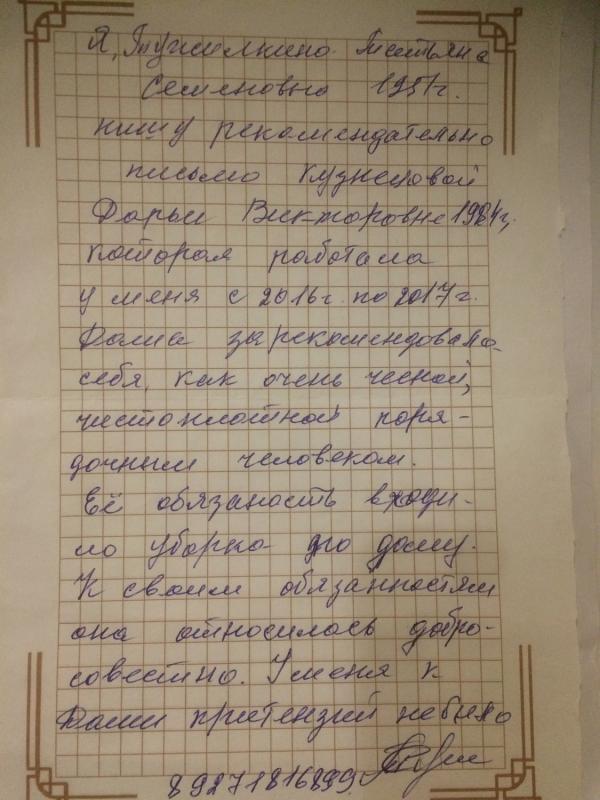 Я, Тужилкина Татьяна
Семеновна 1951г.
пишу рекомендательно
письмо Кузнецовой
Дарьи Викторовне 1984г,
которая работала
у меня с 2016г. по 2017г.
Даша зарекомендовала
себя, как очень чесной,
чистоплотной поря-
дочным человеком.
Её обязаность входи-
ло уборка по дому.
К своим обязанностям
она относилась добро-
совестно. У меня к
Даши притензий небыло
89271816899.